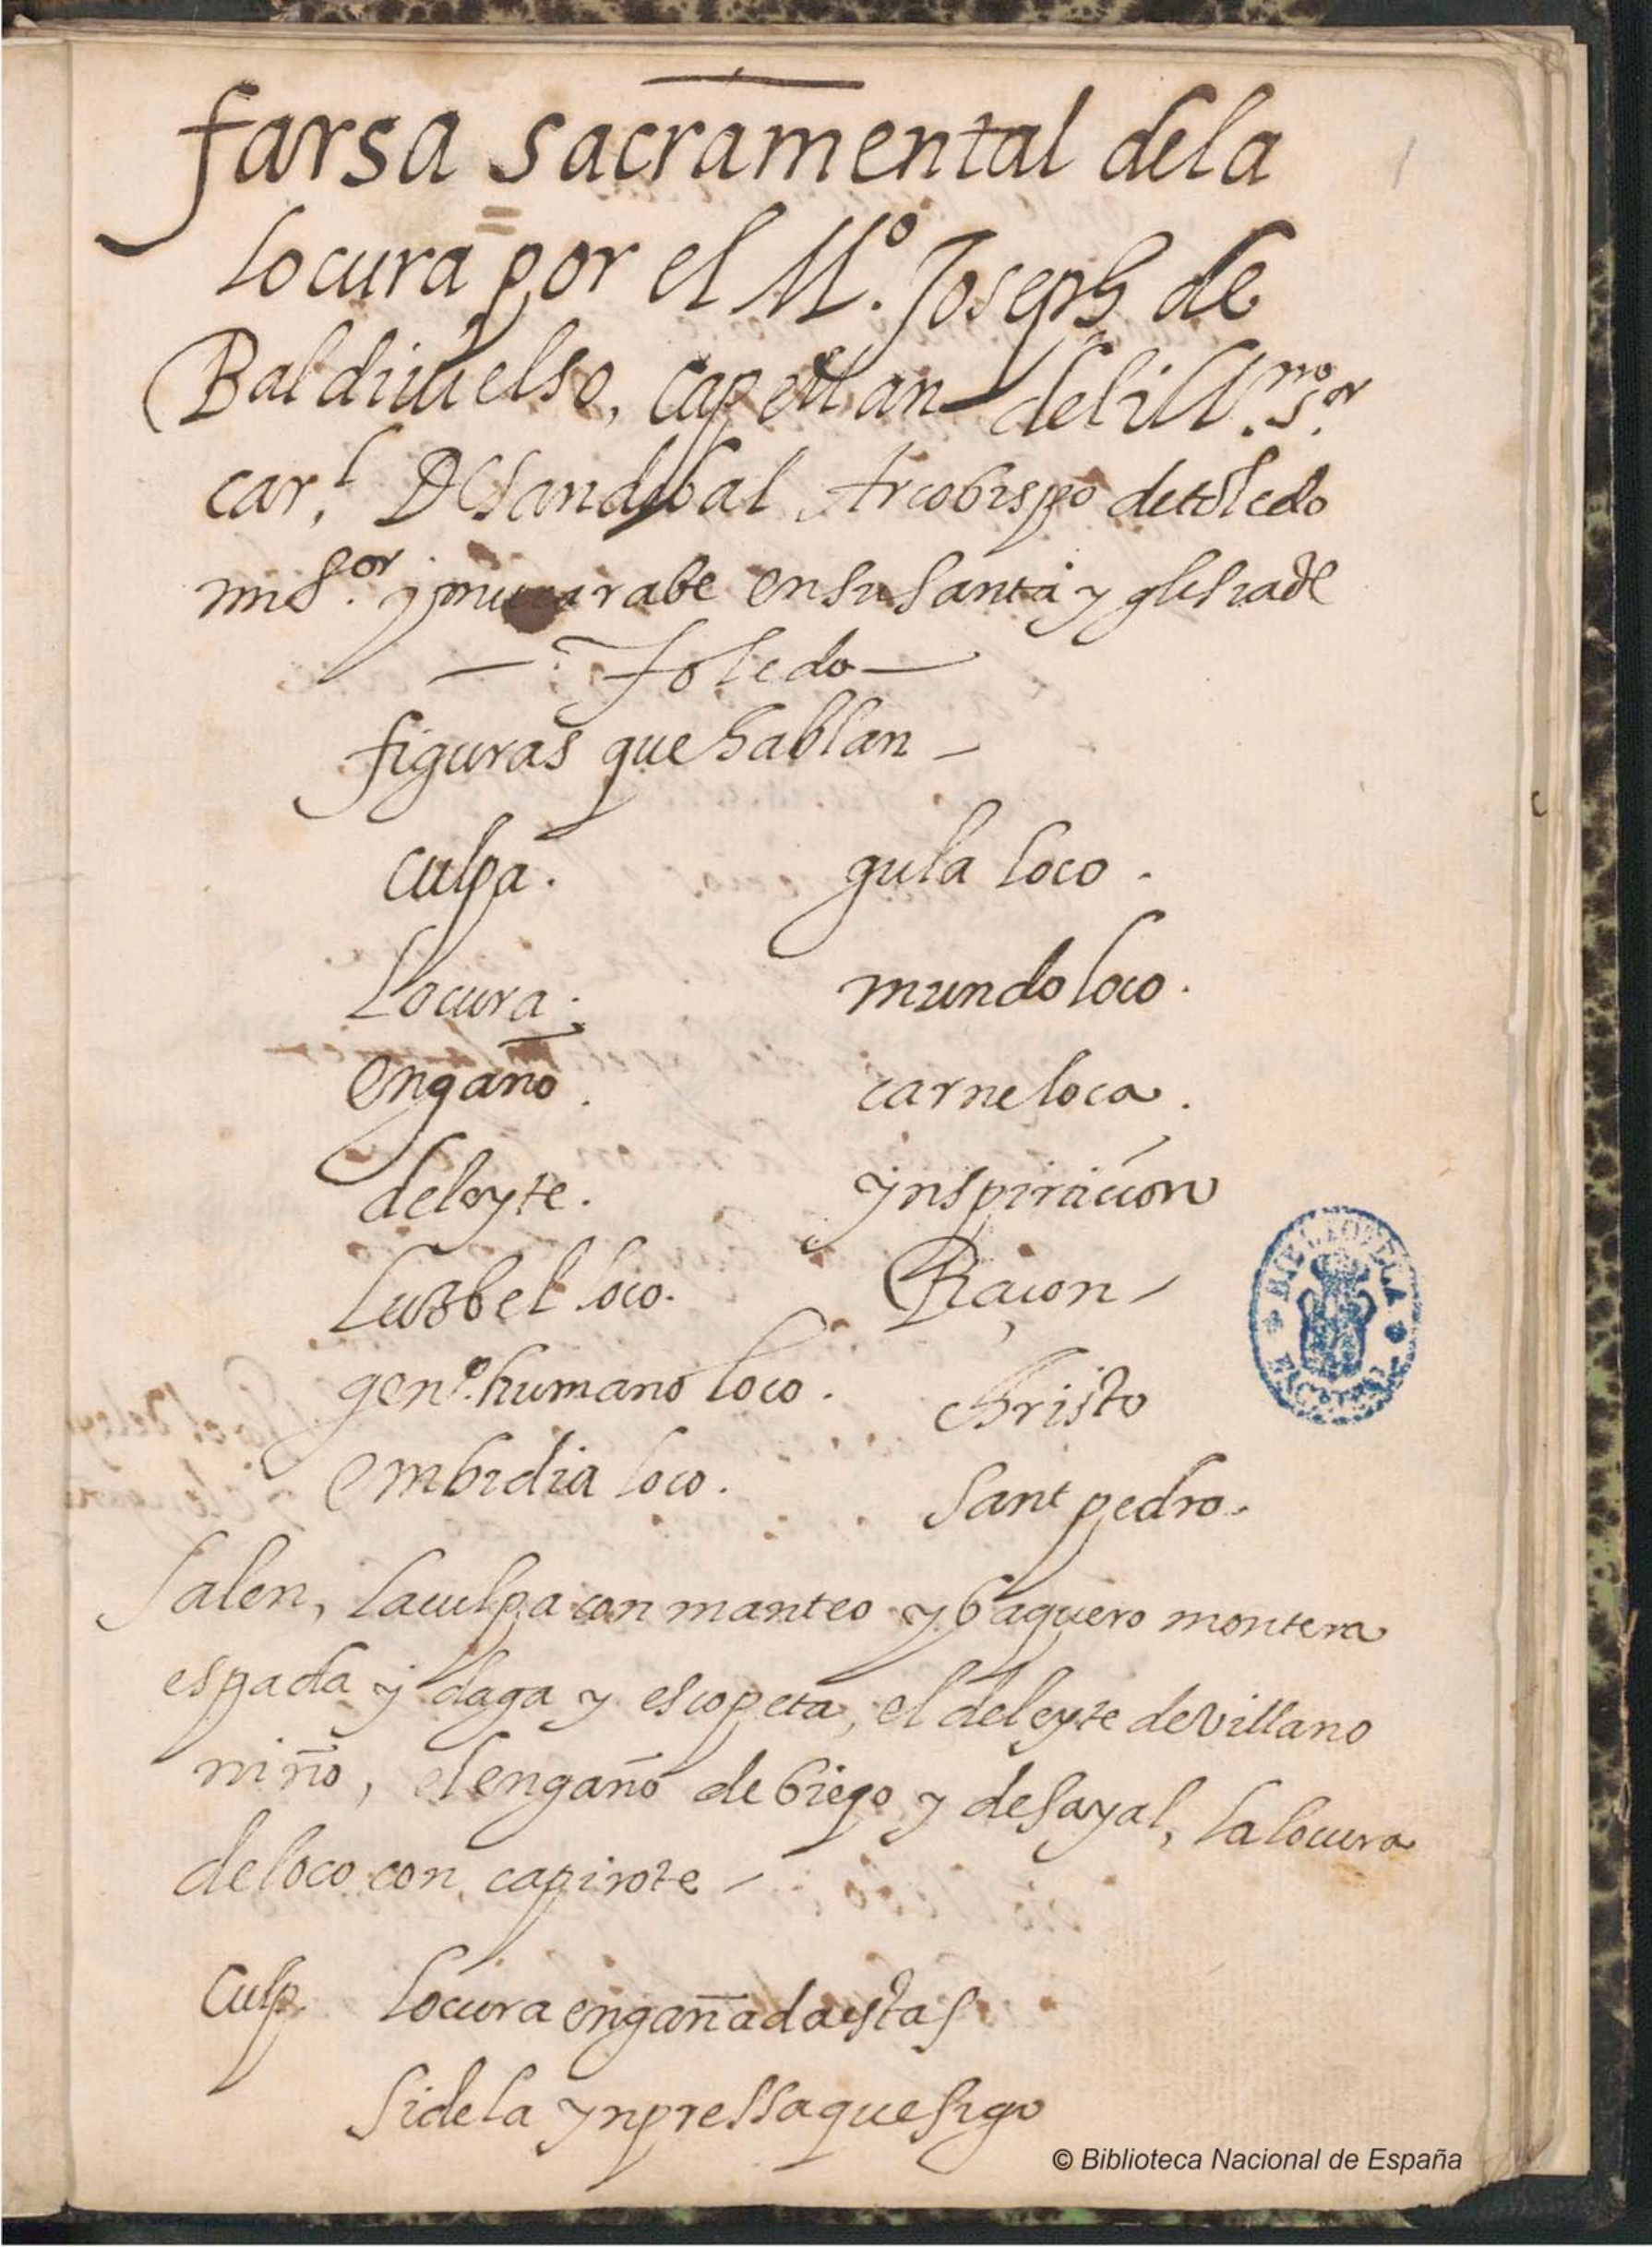 farsa sacramental dela
locura por el M.º Joseph de
Baldiuielso, capellan del ill.mo s.or
car.l D Sandobal Arcobispo detoledo
mi S.or y muçarabe en su santa yglesia de
— Toledo —
figuras que hablan —
culpa. gula loco.
Locura. mundo loco.
engaño. carne loca.
deleyte. ynspiración
Luzbel loco. Raçon
gen.º humano loco. christo
embidia loco. sant pedro.
Salen, la culpa con manteo y baquero montera
espada y daga y escopeta, el deleyte de villano
niño, el engaño de biego y de sayal, la locura
de loco con capirote
Culp. Locura engañada estas
si de la ynpressa que sigo
1
BIBLIOTECA NACIONAL
© Biblioteca Nacional de España